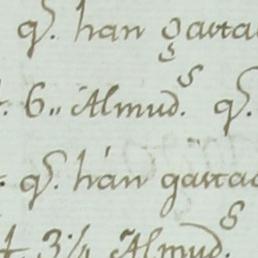 q.^e han gasta
6,, Almud.^s q.^e
q.^e hán gasta
3¼ Almud.^s